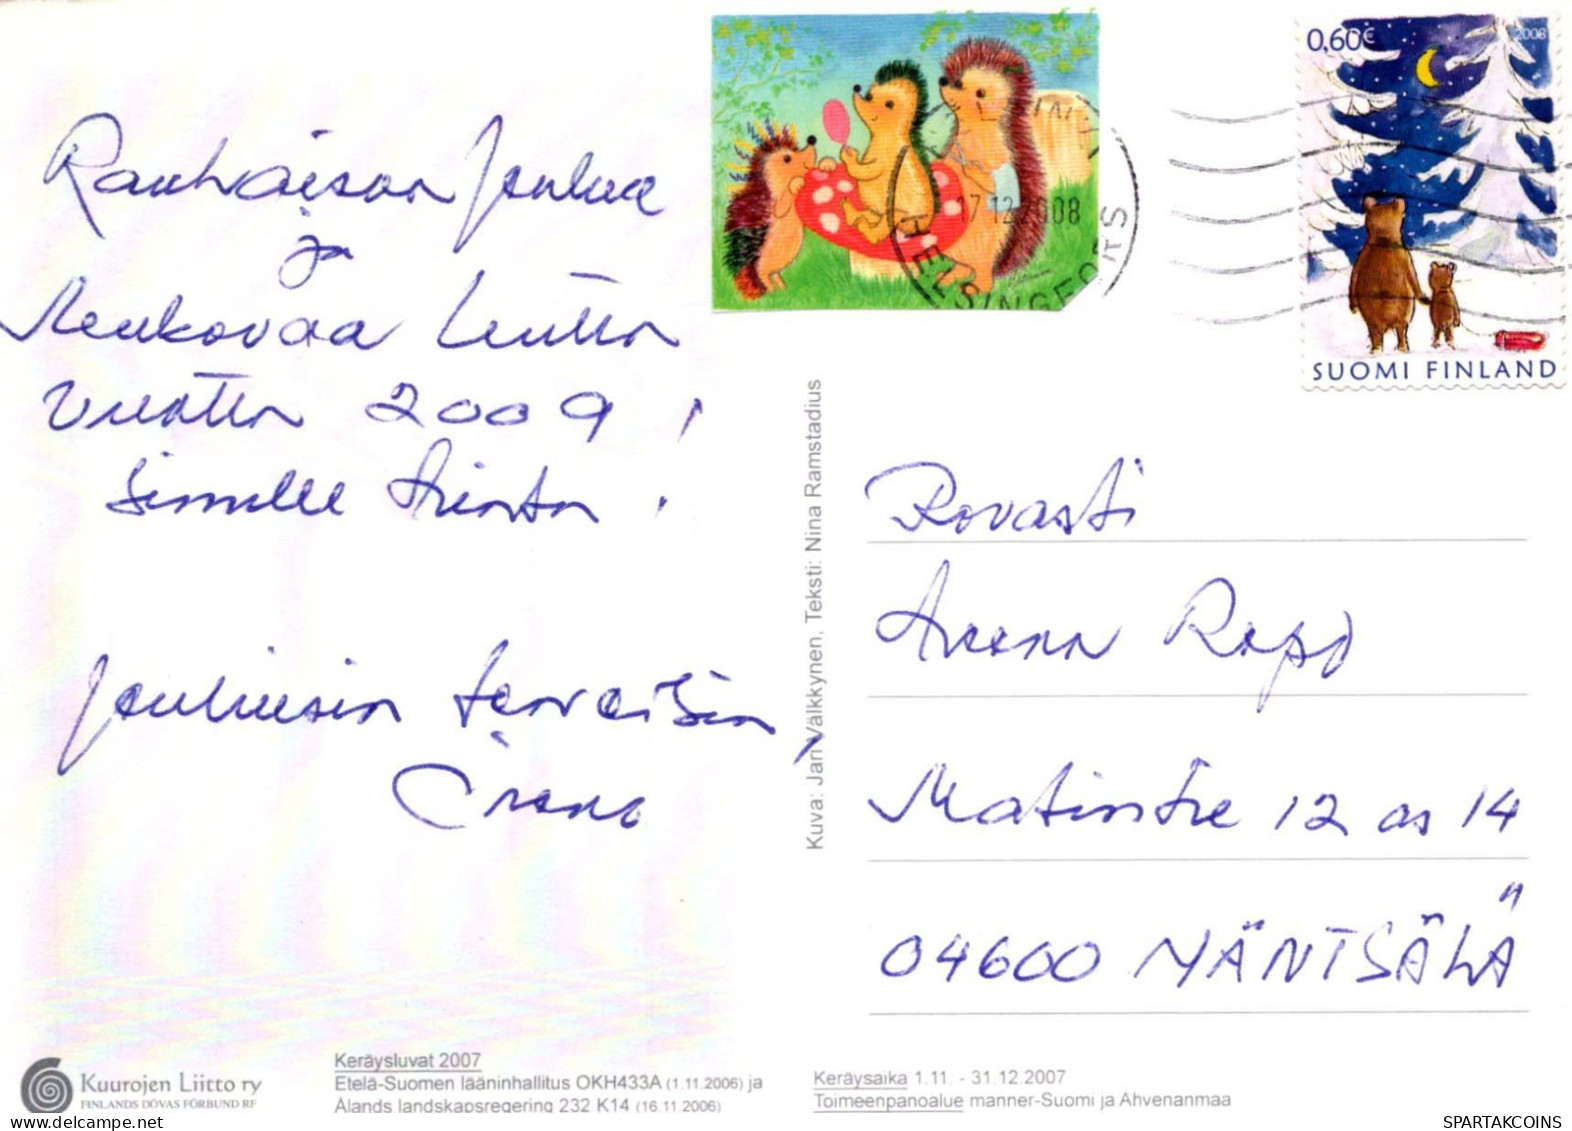 Rauhaisaa Joulua
ja
Mukavaa Uutta
vuotta 2009!
Sinulle
Jouluisin terveisin,
0,60€ 2008
SUOMI FINLAND
17.12.2008
HELSINGFORS
Kuva: Jan Välkkynen, Teksti: Nina Ramstadius
Rovasti
Rapo
Matintie 12 as 14
04600 MÄNTSÄLÄ
Kuurojen Liitto ry
FINLANDS DÖVAS FÖRBUND RF
Keräysluvat 2007
Etelä-Suomen lääninhallitus OKH433A (1.11.2006) ja
Ålands landskapsregering 232 K14 (16.11.2006)
Keräysaika 1.11. - 31.12.2007
Toimeenpanoalue manner-Suomi ja Ahvenanmaa
SPARTAKCOINS